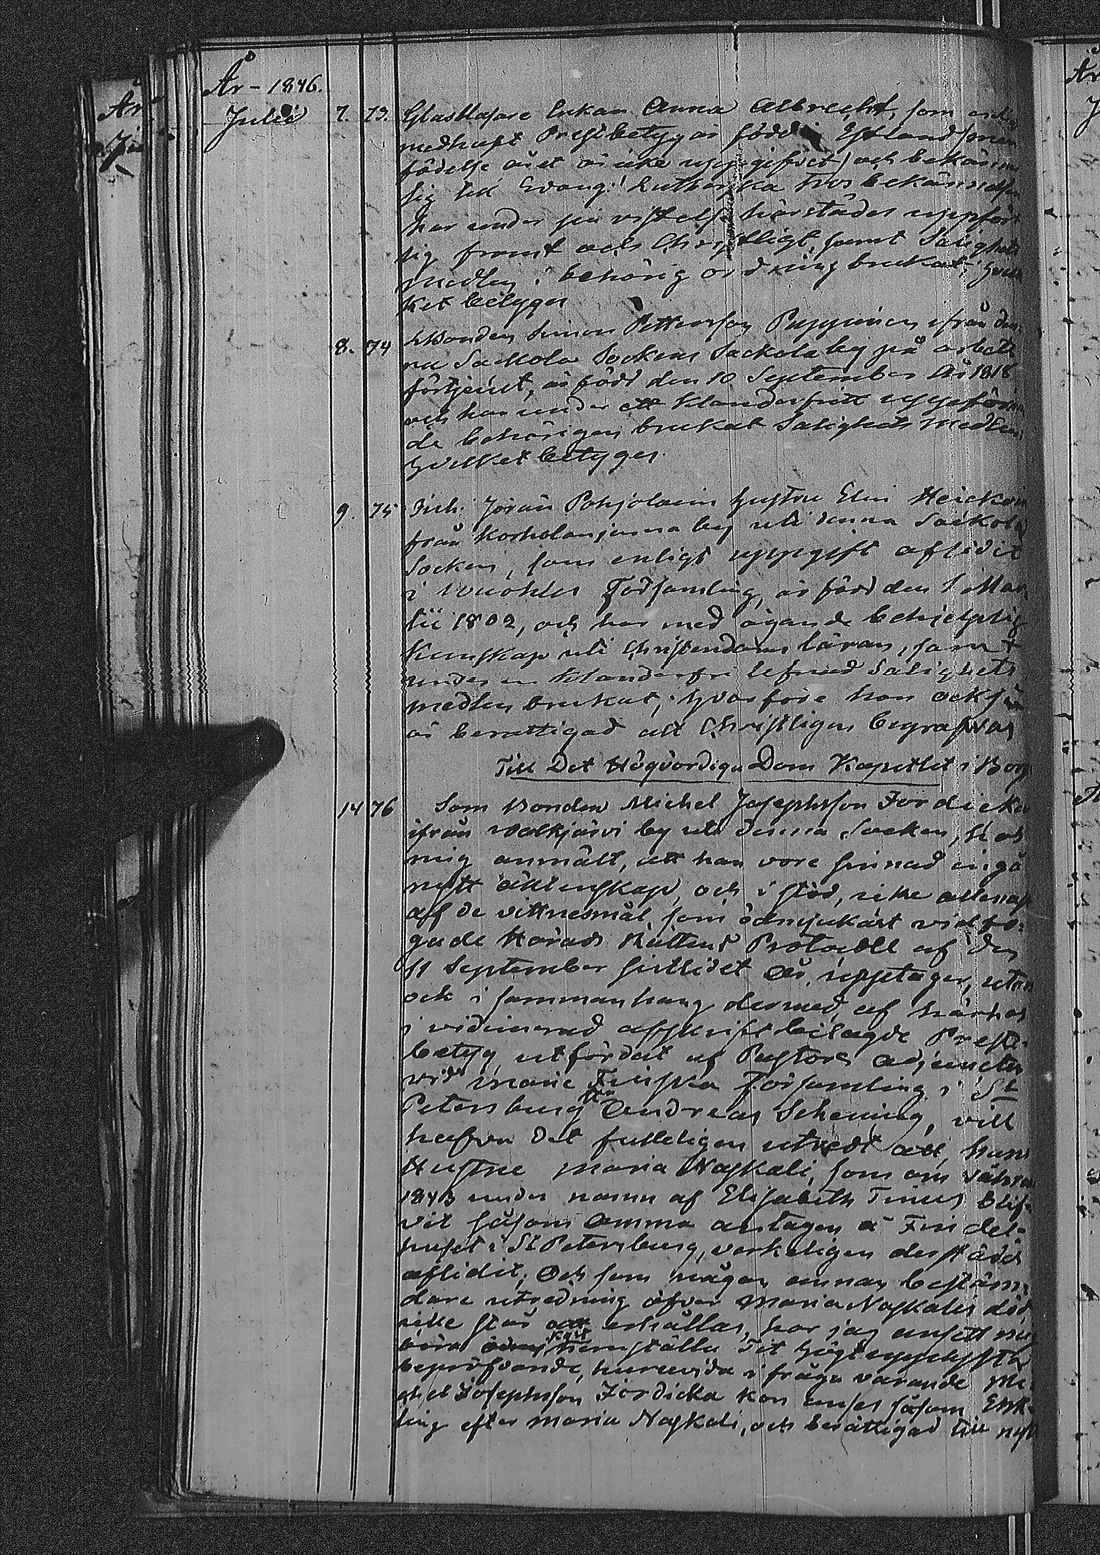 År - 1846.
Julii 7. 73. Glasblasare Enkan Anna Albrecht, som
medhaft Prestbetyg är född i Estland
födelse året är icke uppgifvet) och bekänner
sig till Evang. Lutherska Tros bekännelsen
har under sin vistelse härstädes uppfört
sig fromt och Christligt, samt Salighets
medlen i behörig ordning brukat;
ket betygas
8. 74 Bonden Simon Pettersson Puppinen ifrån den-
na Sackola Socken Sackola by på arbets
förtjenst, är född den 10 September År 1818
och har under ett klanderfritt uppföran-
de behörigen brukat Salighets Medlen
hvilket betygas.
9. 75 Inh. Jöran Pohjolain hustru Elin Heickon
från Korholanjama by uti denna Sackola
Socken, som enligt uppgift aflidit
i Församling, är född den 1 Mar-
tii 1802, och har med ägande behjelplig
kunskap uti Christendoms läran, samt
under en klanderfri lefnad Salighets
medlen brukat; hvarföre hon också
är berättigad att Christligen begrafvas
Till Det Högvördiga Dom Kapitlet i Borg
14 76 Som Bonden Michel Josephsson Fordicka
ifrån Walkjärvi by uti denna Socken, hos
mig anmält, att han vore sinnad ingå
nytt äktenskap, och i stöd, icke allenast
af de vittnesmål som ödmjukast vidfo-
gade Härads Rättens Protocoll af den
11 September sistlidet År, upptager, utan
ock i sammanhang dermed af härhos
i vidimerad afskrift bilagde Prest-
betyg utfärdat af Pastors adjuncten
vid Marie Finska Församling i St
Petersburg Herr Andreas Schening, vill
hafva det fulleligen utredt att hans
Hustru Maria Naskali, som om våhren
1843 under namn af Elisabeth Tenus blif-
vit såsom Amma antagen å Findel-
huset i St Petersburg, verkeligen derstädes
aflidit; Och som någon annan bestäm-
dare utredning öfver Maria Naskalis död
icke står att erhållas, har jag ansett mig
böra hemställa Till högtupplysta
bepröfvande, huruvida i fråga varande Mi-
chel Josephsson Fordicka kan anses såsom Enk-
ling efter Maria Naskali, och berättigad till nytt